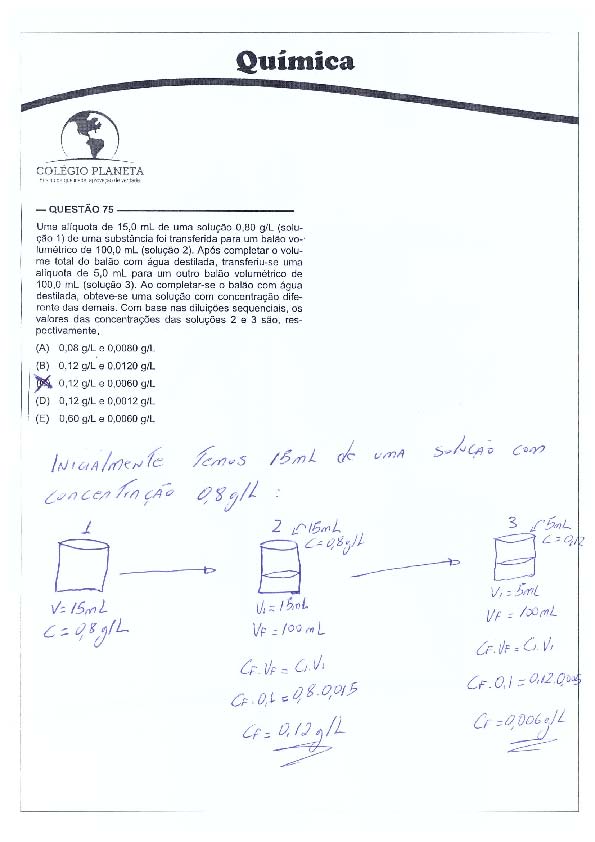 Química
COLÉGIO PLANETA
— QUESTÃO 75
Uma alíquota de 15,0 mL de uma solução 0,80 g/L (solu-
ção 1) de uma substância foi transferida para um balão vo-
lumétrico de 100,0 mL (solução 2). Após completar o volu-
me total do balão com água destilada, transferiu-se uma
alíquota de 5,0 mL para um outro balão volumétrico de
100,0 mL (solução 3). Ao completar-se o balão com água
destilada, obteve-se uma solução com concentração dife-
rente das demais. Com base nas diluições sequenciais, os
valores das concentrações das soluções 2 e 3 são, res-
pectivamente,
(A) 0,08 g/L e 0,0080 g/L
(B) 0,12 g/L e 0,0120 g/L
0,12 g/L e 0,0060 g/L
(D) 0,12 g/L e 0,0012 g/L
(E) 0,60 g/L e 0,0060 g/L
INICIALMENTE TEMOS 15mL de UMA SOLUÇÃO COM
CONCENTRAÇÃO 0,8g/L :
1
V=15mL
C=0,8g/L
2
15mL
C=0,8g/L
V1=15mL
VF=100mL
CF.VF=C1.V1
CF.0,1=0,8.0,015
CF=0,12g/L
3
5mL
C=0,12
V1=5mL
VF=100mL
CF.VF=C1.V1
CF.0,1=0,12.0,005
CF=0,006g/L